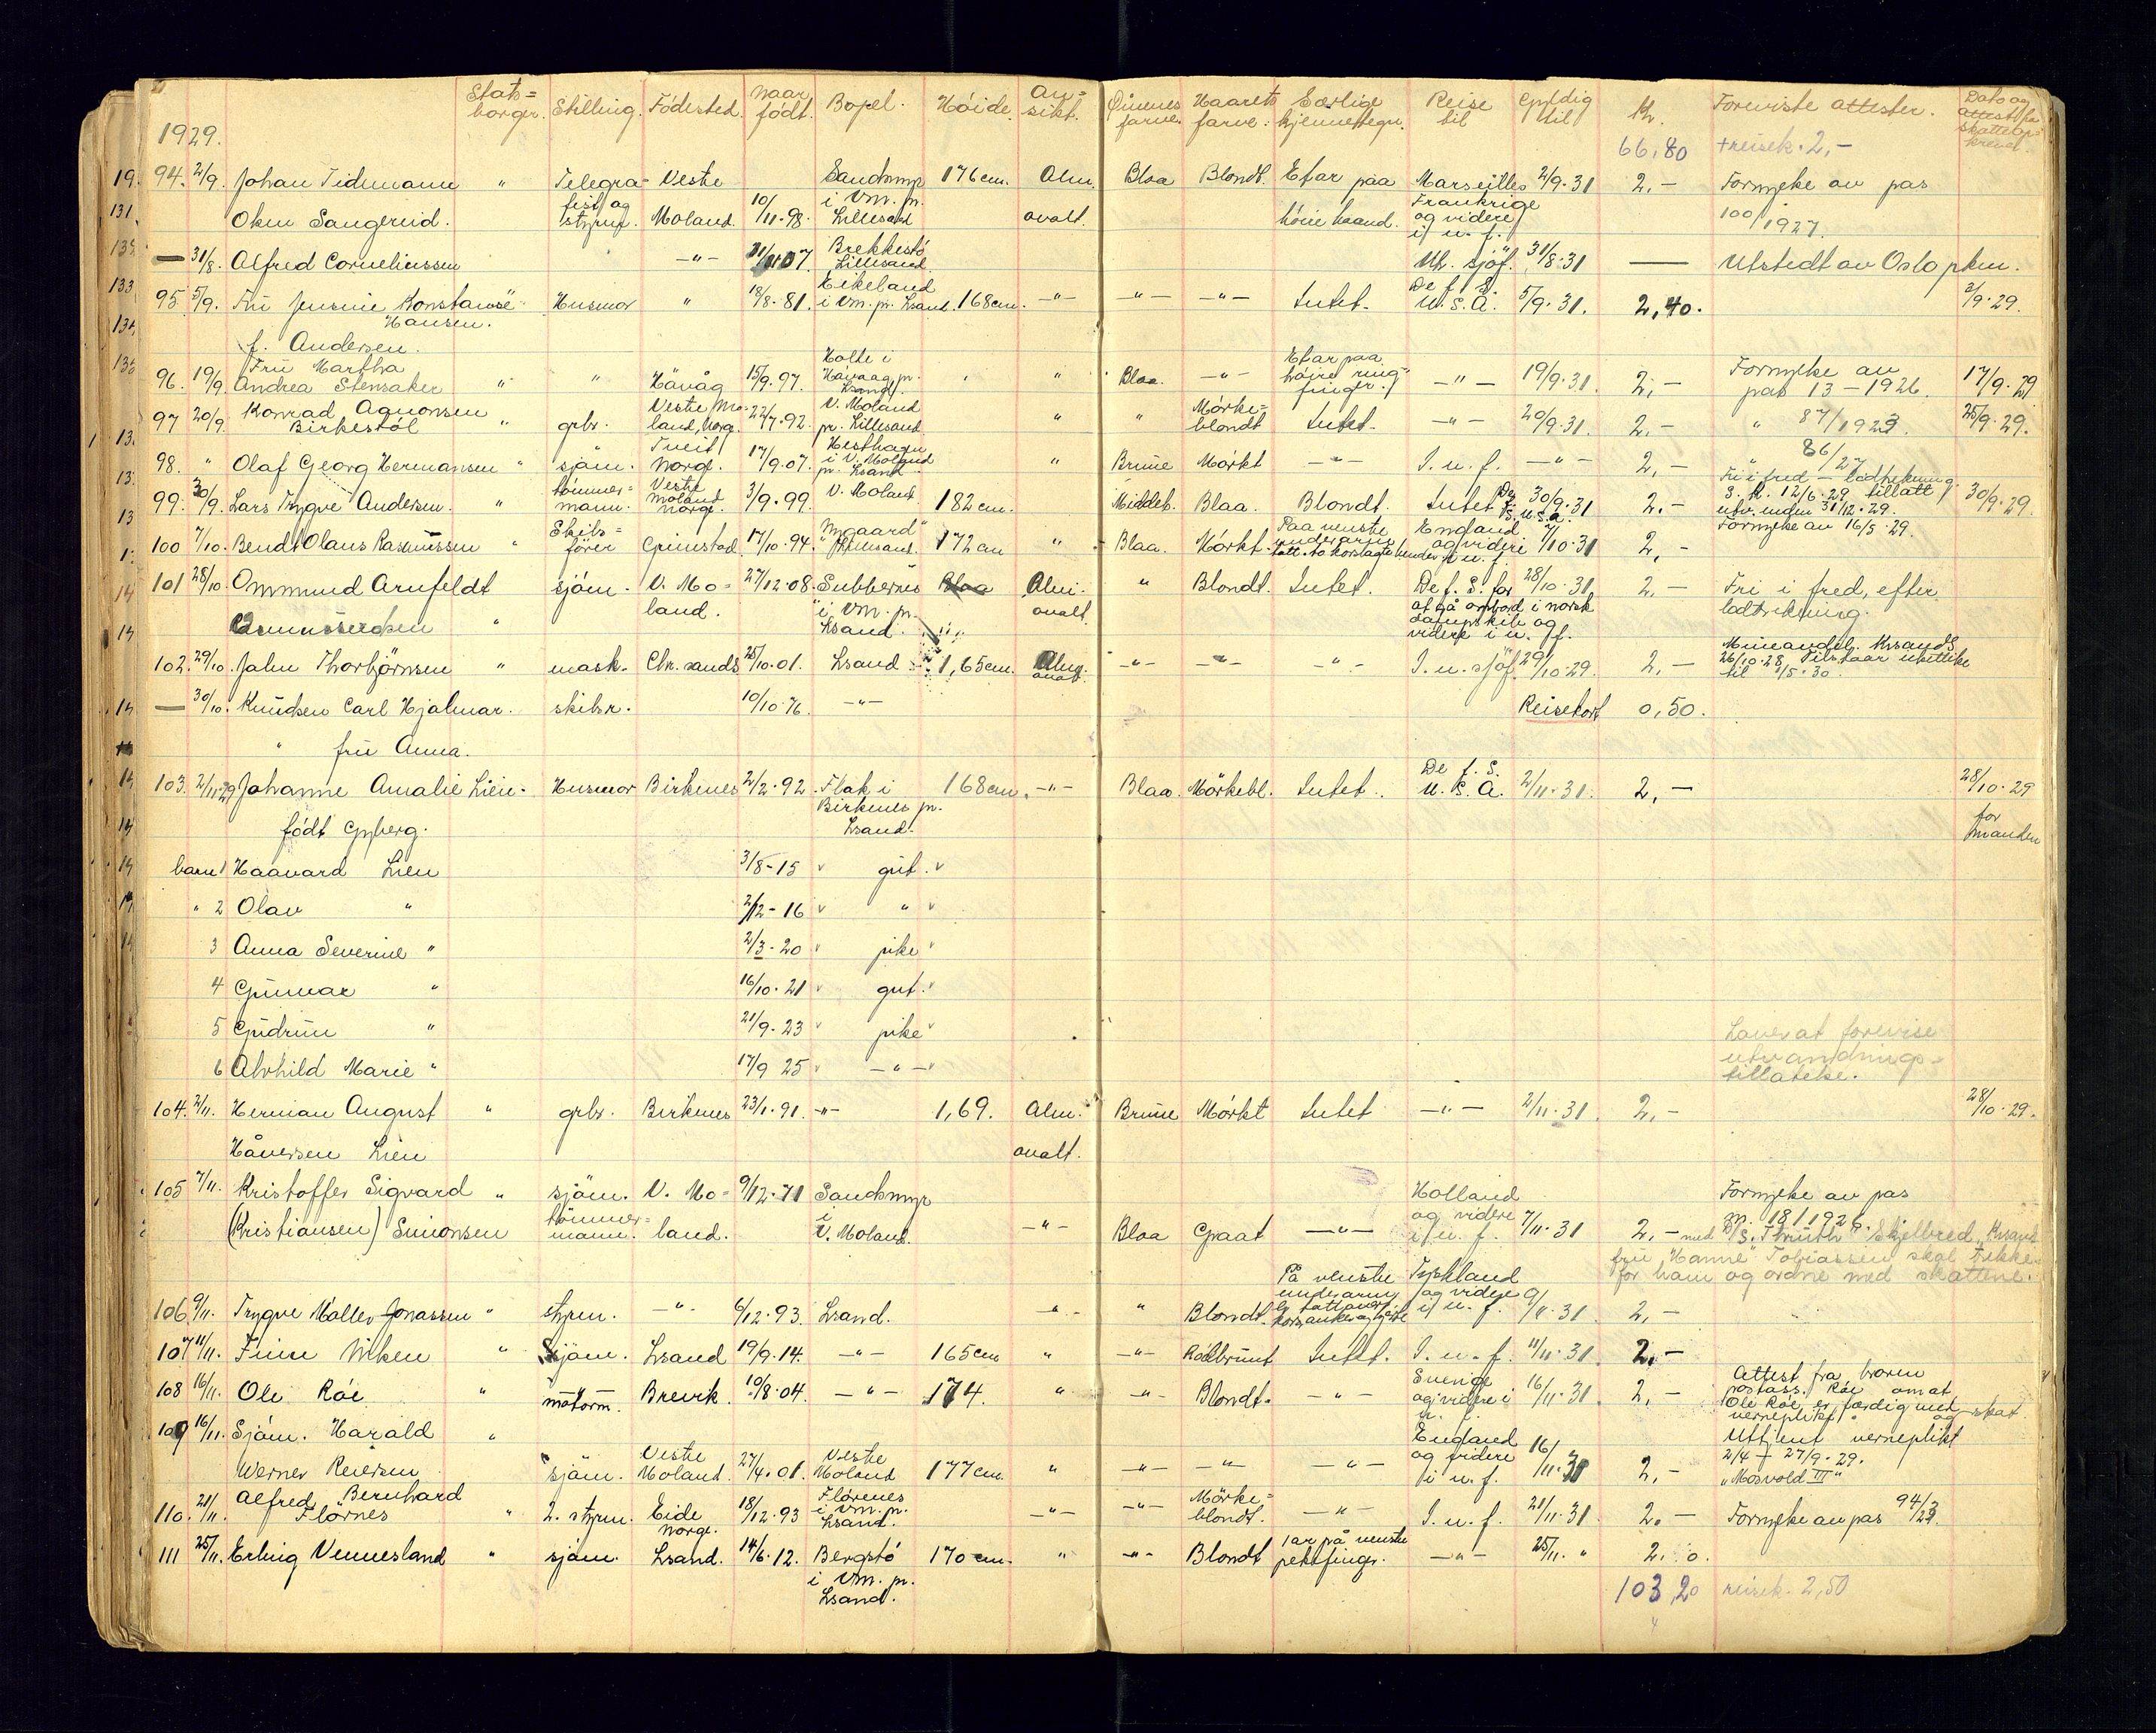 1929.
Stats= borger. Stilling. Födested. Naar födt. Bopel. Höide. An= sikt. Öinenes farve. Haarets farve. Særlige kjennetegn. Reise til Gyldig til Kr. Foreviste attester. Dato og attest fra skatteop= krev.
66,80 + reisek. 2,-
94. 2/9. Johan Tidemann " Telegra= Vestre Sandsmyr 176 cm. Alm. Blaa Blondt. Et ar paa Marseilles 2/9-31 2,- Fornyelse av pas
Oken Saugerud. fist og styrm. Moland. 10/11-98. i VM. pr. Lillesand ovalt. höire haand. Frankrige og videre i u. f. 100/1927.
— 31/8. Alfred Corneliussen —"— 07. Brekkestö Lillesand. Ut. sjöf. 31/8-31 — Utstedt av Oslo pkm.
95 5/9. Fru Jensine Konstanse Hansen. Husmor " 18/8-81. Eikeland i VM. pr. Lsand. 168 cm. —"— —"— —"— Intet. De f. S. U.S.A. 5/9-31. 2,40. 3/9-29.
f. Andersen.
96. 19/9. Fru Martha Andrea Stensaker " " Hävåg 15/9-97. Holte i Hävaag pr. Lsand. " Blaa. —"— Et ar paa höire ring- finger. —"— 19/9-31. 2,- Fornyelse av pas 13 — 1926. 17/9-29
97 20/9. Konrad Agnonsen Birkestöl " grbr. Vestre Mo= land, Norg. 22/7-92. V. Moland pr. Lillesand " " Mörke= blondt Intet. —"— 20/9-31. 2,- " 87/1923. 25/9-29.
98. " Olaf Georg Hermansen " sjöm. Tveit Norge. 17/9-07. Hesthagen i V. Moland pr. Lsand. " Brune Mörkt —"— I. u. f. —"— 2,- " 86/27
99. 30/9. Lars Trygve Andersen. " tömmer= mann. Vestre Moland Norge. 3/9-99. V. Moland 182 cm. Middels. Blaa. Blondt. Intet De f. S. U.S.A. 30/9-31 2,- Fri i fred — lodtrekning. S. K. 12/6-29 tillatt utv. inden 31/12-29. 30/9-29.
100 7/10. Bendt Olaus Rasmussen " Skibs= förer Grimstad. 17/10-94. "Nygaard" Lillesand. 172 cm " Blaa. Mörkt. Paa venstre underarm tatt. to korslagte hender England og videre i u. f. 7/10-31 2,- Fornyelse av 16/5-29.
101 28/10. Ommund Arnfeldt sjöm. V. Mo= 27/12-08. Subbernes Alm. " Blondt. Intet. De f. S. for 28/10-31. 2,- Fri i fred, efter
" land. i VM. pr. Lsand. ovalt. at gå ombord i norsk dampskib og videre i u. f. lodtrekning.
102. 29/10. John Thorbjörnsen " mask. Chr. sands 25/10-01. Lsand 1,65 cm. Alm. ovalt. —"— —"— —"— I. u. sjöf. 29/10-29. 2,- Mineavdel. Krsands 26/10-28 til 1/5-30.
— 30/10. Knudsen Carl Hjalmar. skibsr. 10/10-76. —"— Reisekort 0,50.
" fru Anna.
103. 2/11-29 Johanne Amalie Lien. Husmor Birkenes 2/2-92. Flak i Birkenes pr. Lsand. 168 cm. —"— Blaa. Mörkebl. Intet. De f. S. U.S.A. 2/11-31. 2,- 28/10-29
födt Gyberg. for manden
barn 1 Haavard Lien 3/8-15 " gut. "
" 2 Olav " 2/12-16 " " "
3 Anna Severine " 2/3-20 " pike "
4 Gunnar " 16/10-21 " gut. "
5 Gudrun " 21/9-23 " pike "
6 Alvhild Marie " 17/9 25 " —"—
Lover at forevise utvandrings= tillatelse.
104. 2/11. Herman August " grbr. Birkenes 23/1-91. —"— 1,69. Alm. Brune Mörkt Intet —"— 2/11-31. 2,- 28/10-29.
Håversen Lien ovalt.
105 7/11. Kristoffer Sigvard " sjöm. V. Mo= 9/12-71 Sandsmyr Holland Fornyelse av pas
(Kristiansen) Simonsen tömmer= mann. land. i V. Moland. —"— Blaa Graat —"— og videre i u. f. 7/11-31 2,- m. 18/1926. med D/S. "Truth" Skjelbred, Krsand
fru "Hanne" Tobiassen skal trekke for ham og ordne med skattene.
106 9/11. Trygve Möller Jonassen " styrm. —"— 6/12-93. Lsand. —"— " Blondt. På venstre underarm er tattovert kors, anker og hjerte Tyskland og videre i u. f. 9/11-31. 2,-
107 11/11. Finn Niken " Sjöm. Lsand 19/9-14. —"— 165 cm " —"— Rödbrunt Intet. I. u. f. 11/11-31. 2,-
108 16/11. Ole Röe " motorm. Brevik. 10/8-04. —"— 174. " —"— Blondt. —"— Sverige og videre i u. f. 16/11-31. 2,- Attest fra broren postass. Röe om at Ole Röe er færdig med verneplikt og skat.
109 16/11. Sjöm. Harald " England Uttjent verneplikt
Werner Reiersen sjöm. Vestre Moland. 27/4-01. Vestre Moland 177 cm. " —"— —"— —"— og videre i u. f. 16/11-31 2,- 2/4 — 27/9-29. "Mosvold III"
110. 21/11. Alfred Bernhard Flörnes " 2. styrm. Eide Norge. 18/12-93 Flörenes i VM. pr. Lsand. —"— —"— Mörke= blondt. —"— I. u. f. 21/11-31. 2.- Fornyelse av pas 94/29.
111 25/11. Erling Vennesland " sjöm. Lsand. 14/6-12. Bergstö i VM. pr. Lsand. 170 cm. " —"— Blondt 1 ar på venstre pekefinger. —"— 25/11. "
103,20 reisek. 2,50